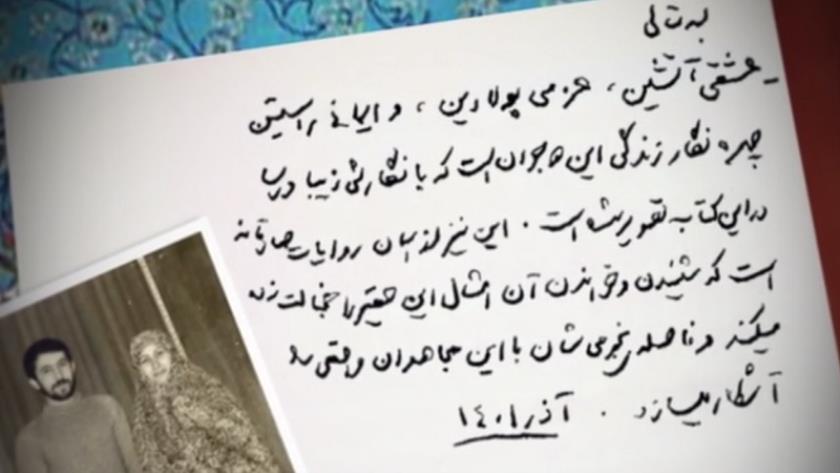 بسمه‌تعالی
- عشقی آتشین، عزمی پولادین، و ایمانی راستین
چهره نگار زندگی این دو جوان است که با نگارشی زیبا و رسا
در این کتاب به تصویر نشسته است. این نیز از همان روایات صادقانه
است که شنیدن و خواندن آن امثال این حقیر را خجالت زده
میکند و فاصله‌ی نجومی شان با این مجاهدان واقعی را
آشکار میسازد. آذر ۱۴۰۱